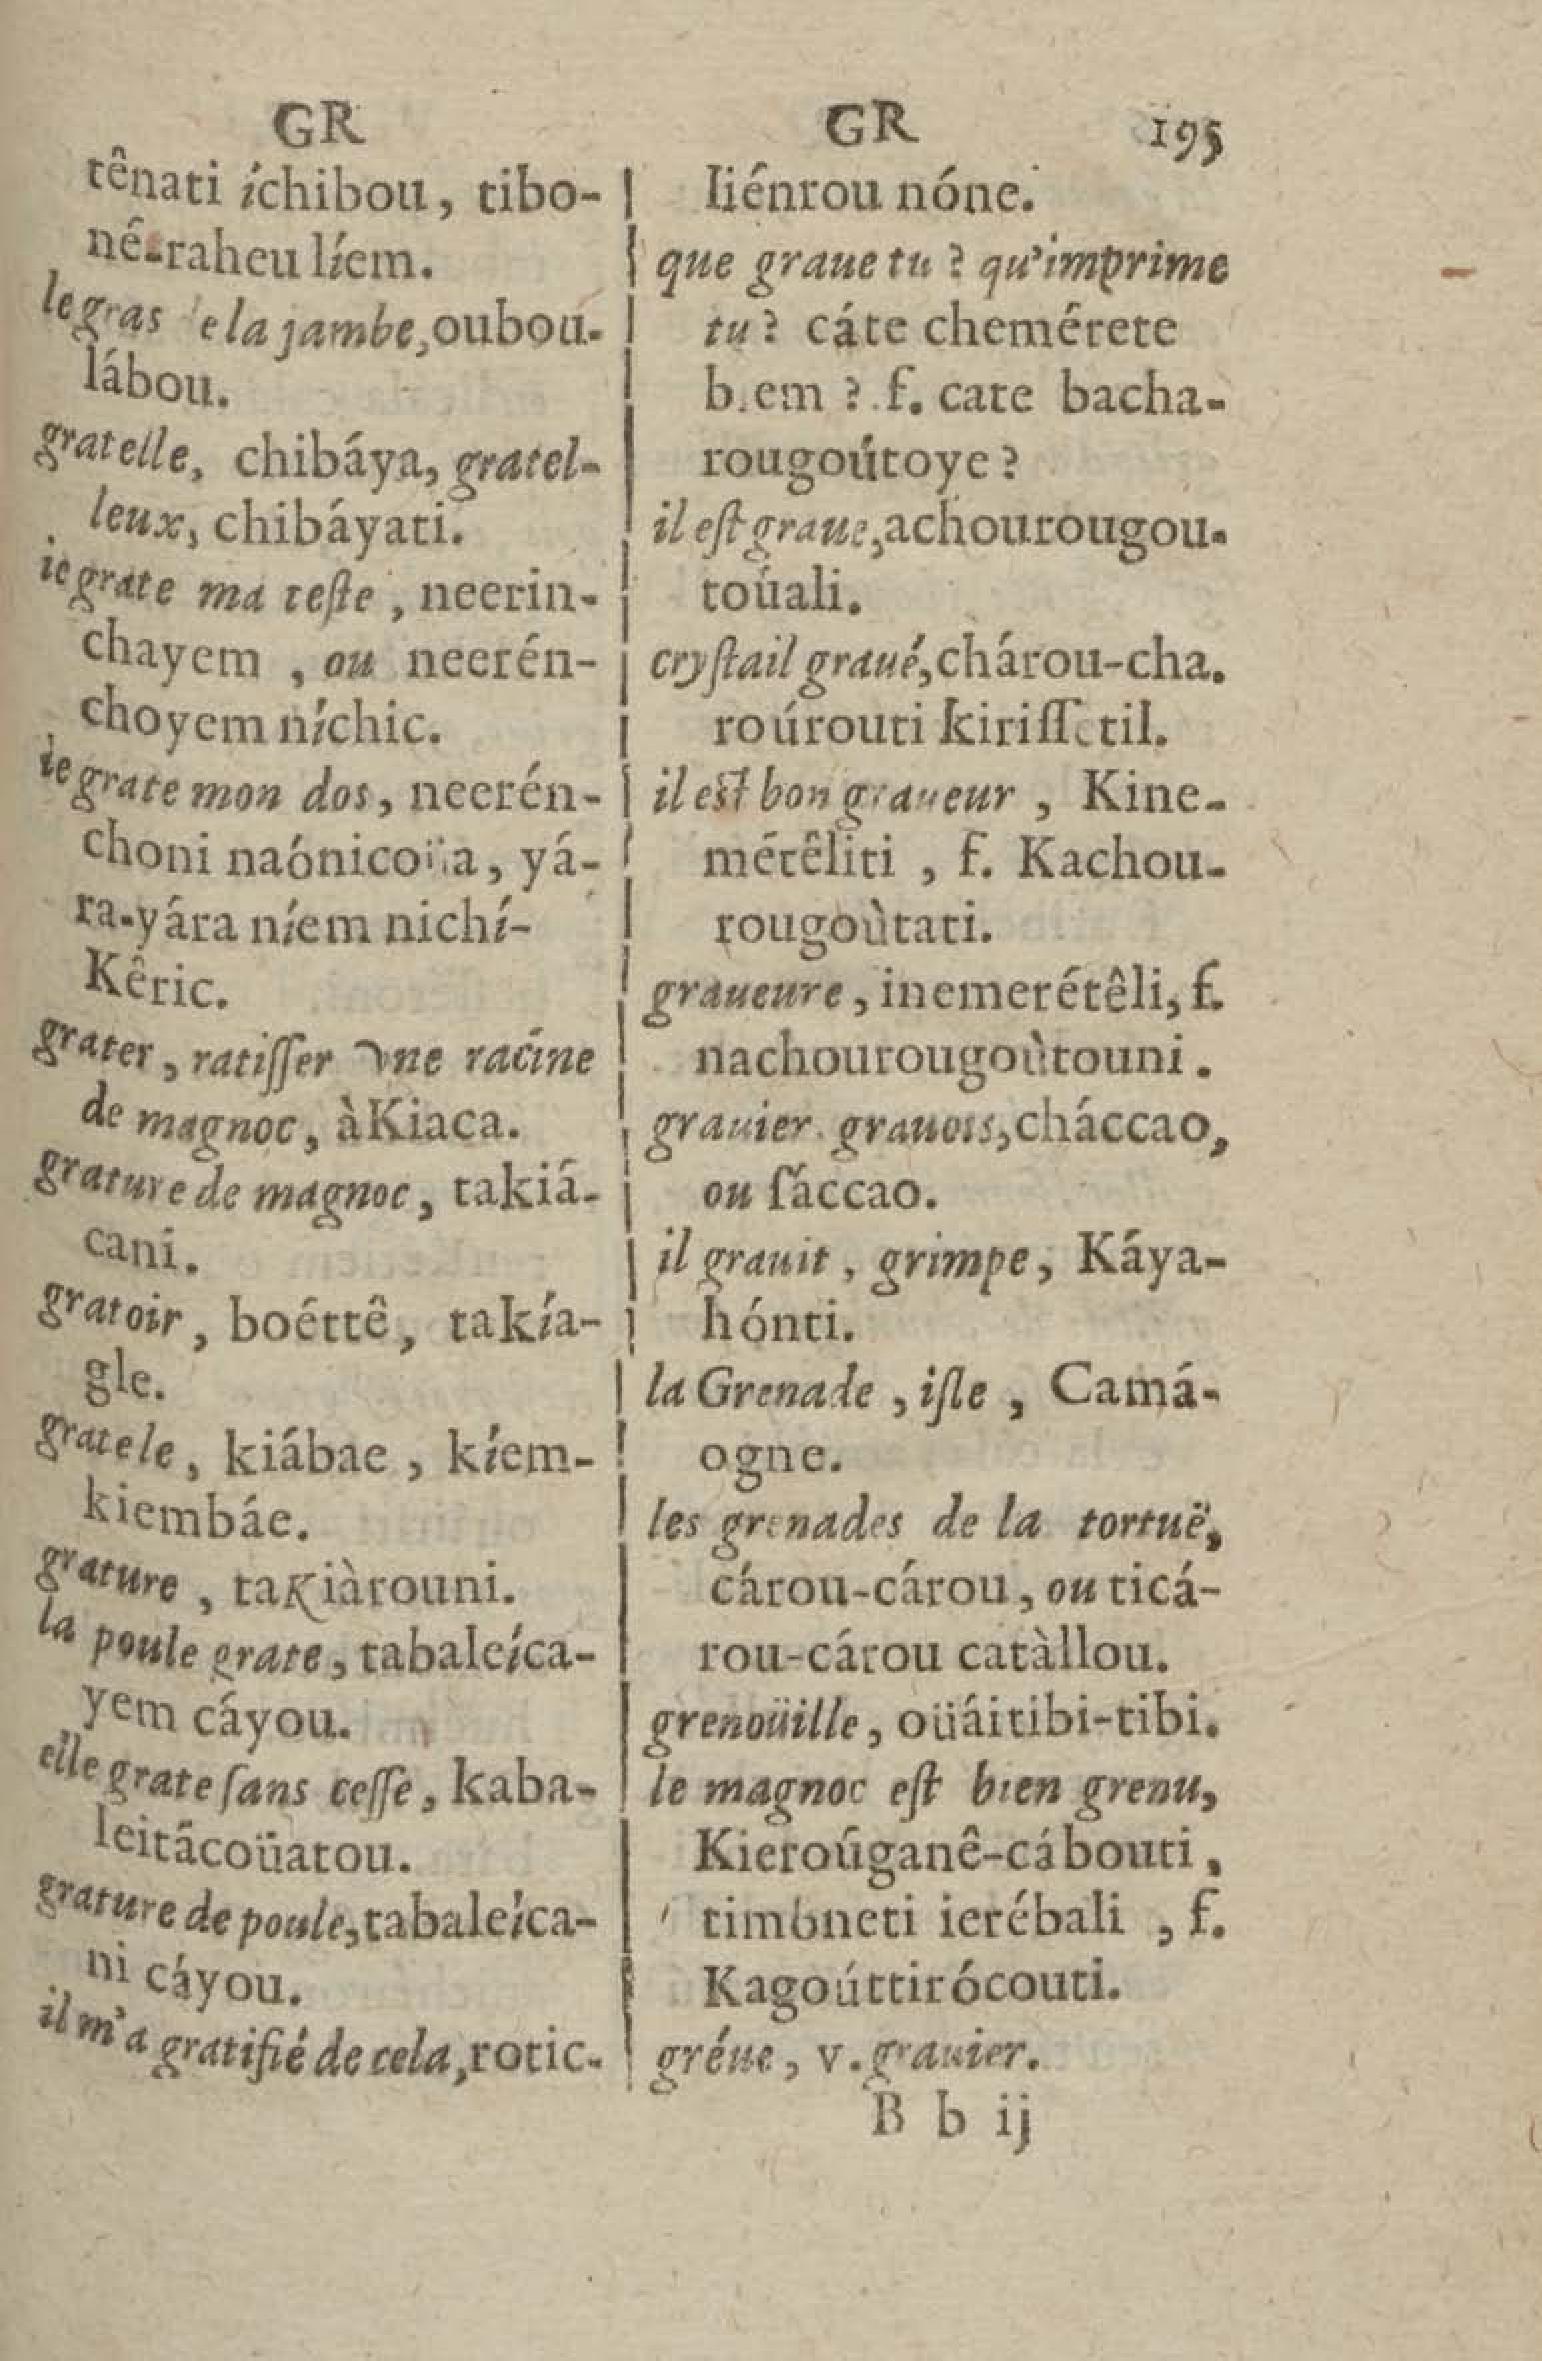 GR
tênati íchibou, tibo-
né-raheu líem.
le gras de la jambe, oubou-
lábou.
gratelle, chibáya, gratel-
leux, chibáyati.
ie grate ma teſte, neerin-
chayem, ou neerén-
choyem níchic.
ie grate mon dos, neerén-
choni naónicoüa, yá-
ra-yára níem nichí-
Kêric.
grater, ratiſſer vne racine
de magnoc, àKiaca.
grature de magnoc, takiá-
cani.
gratoir, boéttê, takía-
gle.
gratele, kiábae, kíem-
kiembáe.
grature, taKiàrouni.
la poule grate, tabaleíca-
yem cáyou.
elle grate ſans ceſſe, kaba-
leitácoüatou.
grature de poule, tabaleíca-
ni cáyou.
il m'a gratifié de cela, rotic-
GR 195
liénrou nóne.
que graue tu? qu'imprime
tu? cáte chemérete
biem? f. cate bacha-
rougoútoye?
il eſt graue, achourougou-
toúali.
cryſtail graué, chárou-cha-
roúrouti kiriſſetil.
il eſt bon graueur, Kine-
métêliti, f. Kachou-
rougoùtati.
graueure, inemerétêli, f.
nachourougoùtouni.
grauier grauois, cháccao,
ou ſáccao.
il grauit, grimpe, Káya-
hónti.
la Grenade, iſle, Camá-
ogne.
les grenades de la tortuë,
cárou-cárou, ou ticá-
rou-cárou catàllou.
grenoüille, oüáitibi-tibi.
le magnoc eſt bien grenu,
Kieroúganê-cábouti,
timbneti ierébali, f.
Kagoúttirócouti.
gréue, v. grauier.
B b ij